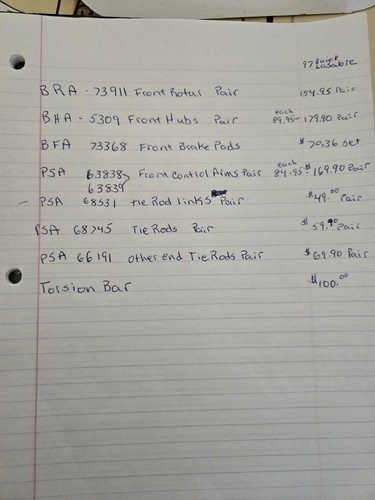 97 Buick
LeSabre
BRA - 73911 Front Rotur Pair 154.95 Pair
BHA - 5309 Front Hubs Pair each 89.95 - 179.90 Pair
BFA 73368 Front Brake Pads $70.36 set
PSA 63838 Front Control Arms Pair each 84.95 - $169.90 Pair
63839
- PSA 68531 tie Rod links Pair $49.00 Pair
PSA 68745 Tie Rods Pair $59.90 Pair
PSA 66191 other end Tie Rods Pair $69.90 Pair
Torsion Bar $100.00